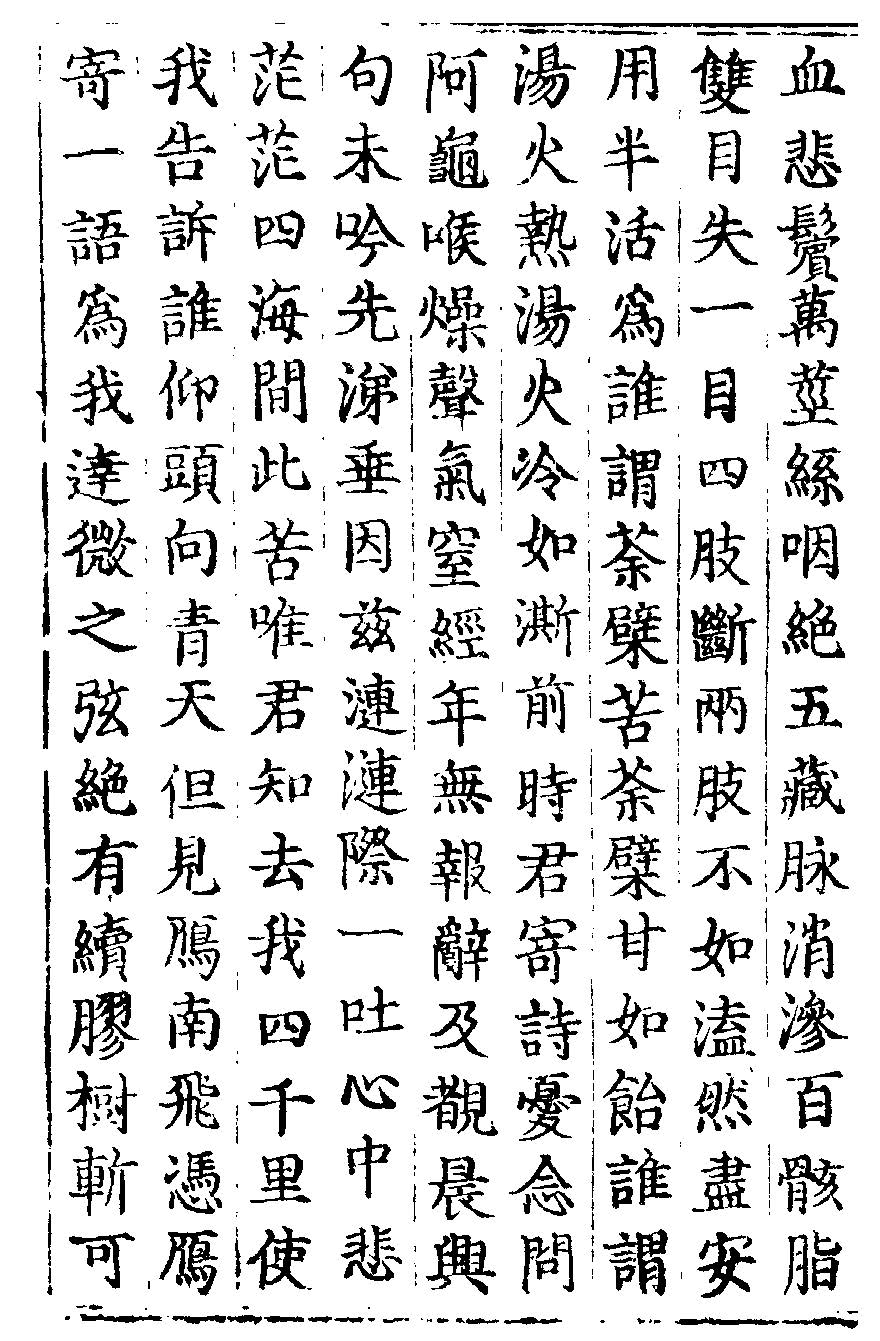 血悲鬢萬莖絲咽絶五藏脉消滲百骸脂
雙目失一目四肢斷兩肢不如溘然盡安
用半活爲誰謂荼蘖苦荼蘖甘如飴誰謂
湯火熱湯火冷如澌前時君寄詩憂念問
阿龜喉燥聲氣窒經年無報辭及覩晨興
句未吟先涕垂因兹漣漣際一吐心中悲
茫茫四海間此苦唯君知去我四千里使
我告訴誰仰頭向青天但見鴈南飛憑鴈
寄一語爲我達微之弦絶有續膠樹斬可